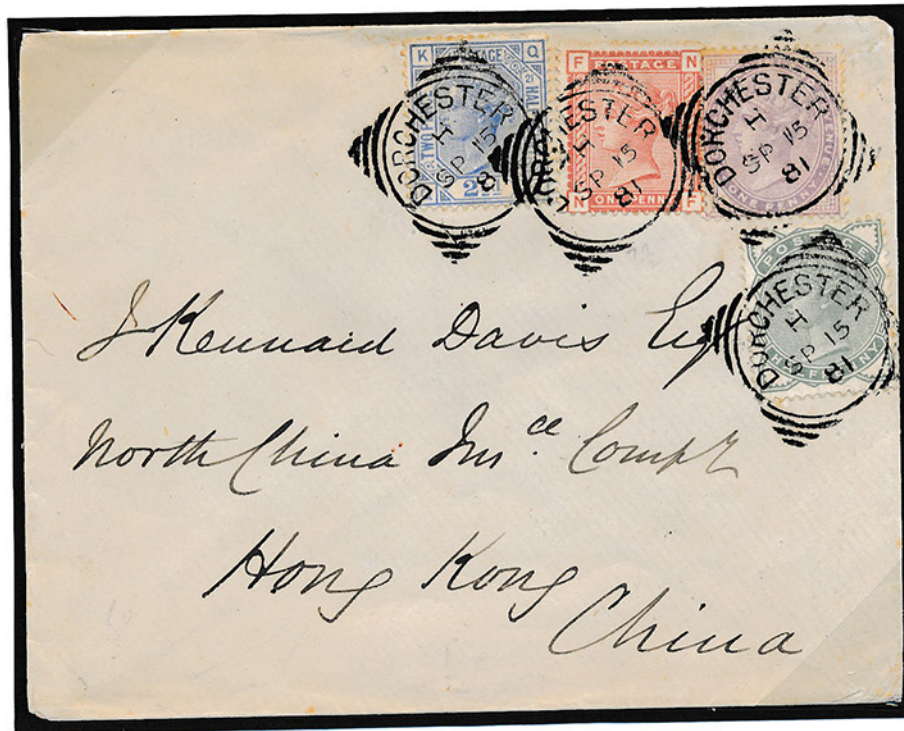 K Q
POSTAGE
TWO
HAL
2½
DORCHESTER
H
SP 15
81
F N
POSTAGE
N F
ONE PENNY
DORCHESTER
H
SP 15
81
ONE PENNY
DORCHESTER
H
SP 15
81
POSTAGE
HALFPENNY
DORCHESTER
H
SP 15
81
J Kennaid Davis Esq
North China Insce. Compy
Hong Kong
China